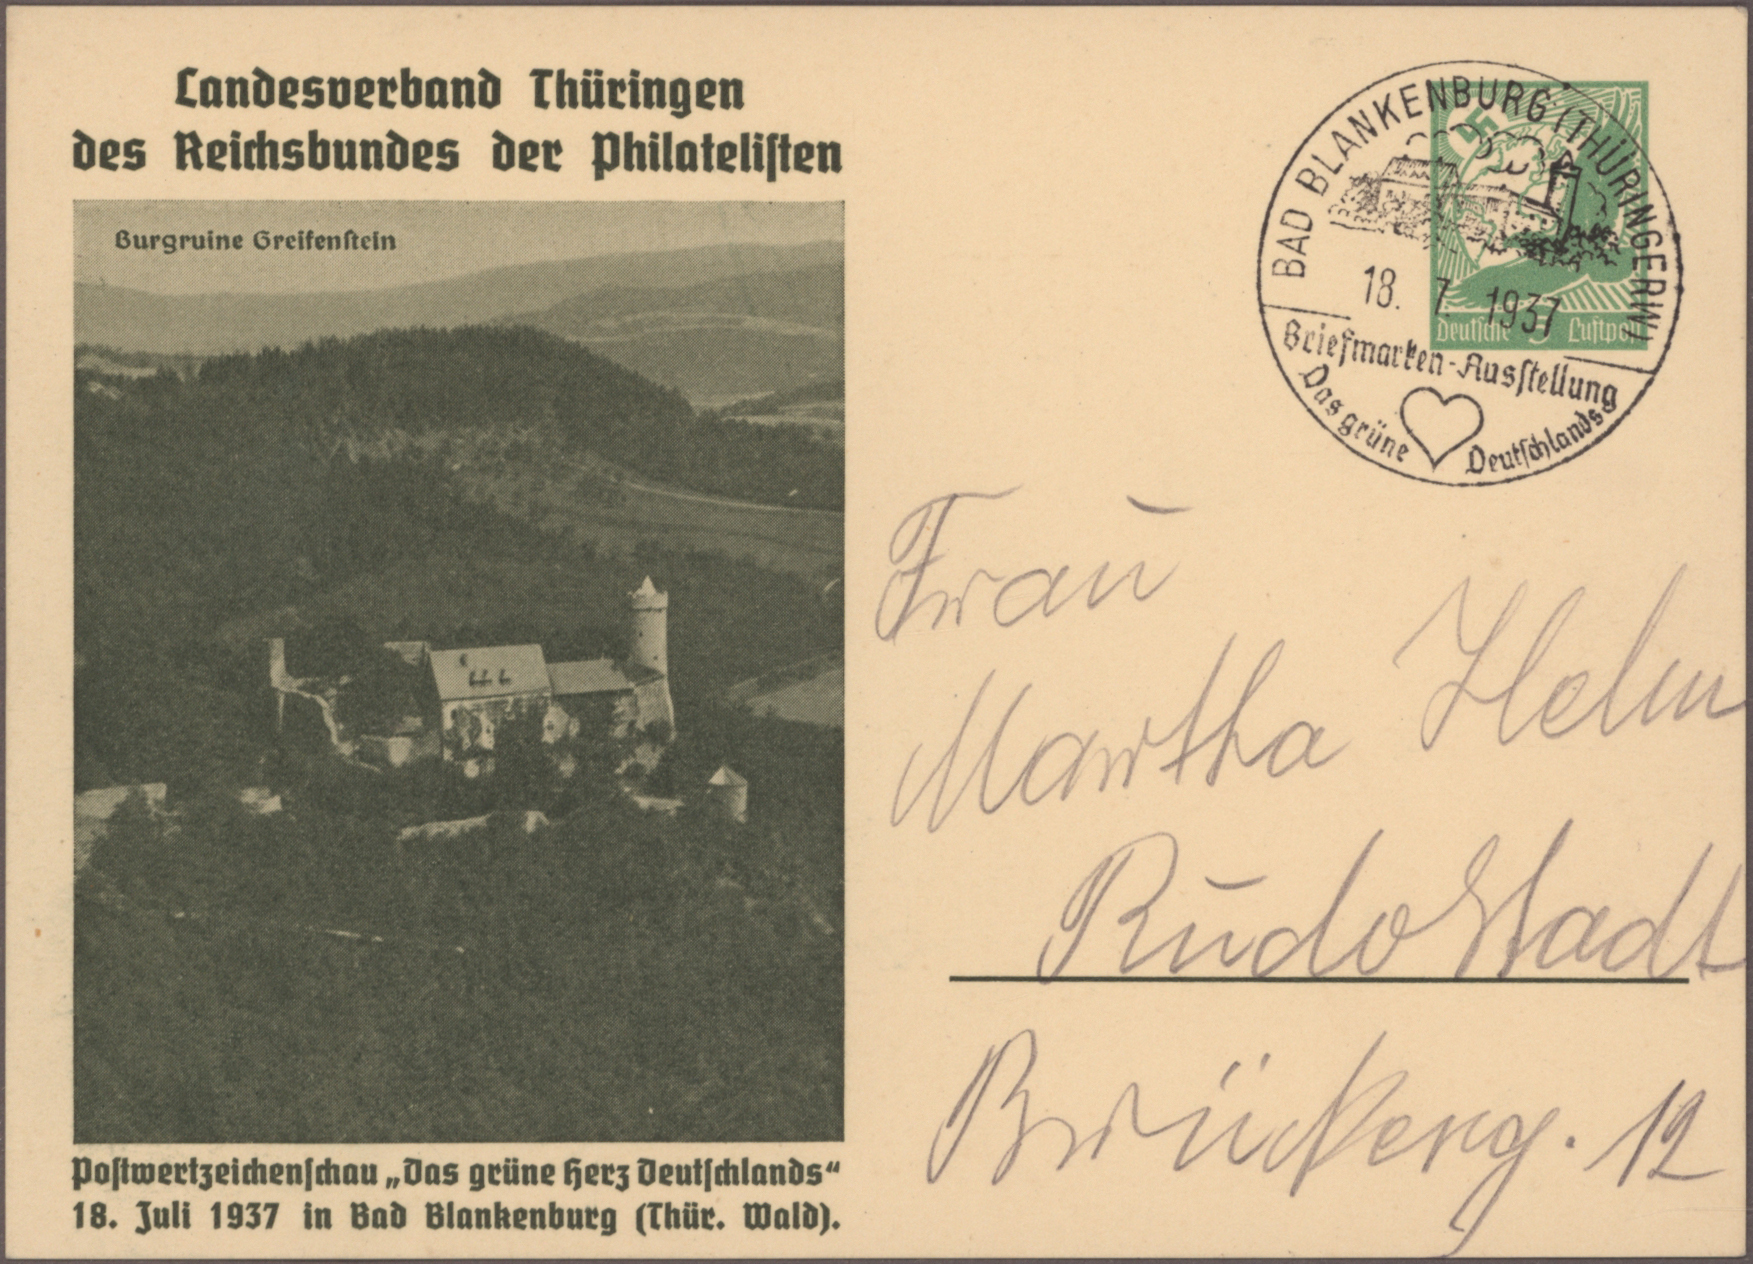 Landesverband Thüringen
des Reichsbundes der Philatelisten
Burgruine Greifenstein
Postwertzeichenschau „Das grüne Herz Deutschlands“
18. Juli 1937 in Bad Blankenburg (Thür. Wald).
BAD BLANKENBURG (THÜRINGERW)
18. 7. 1937
Briefmarken-Ausstellung
Das grüne Deutschlands
Deutsche 5 Luftpost
Frau
Martha Helm
Rudolstadt
12